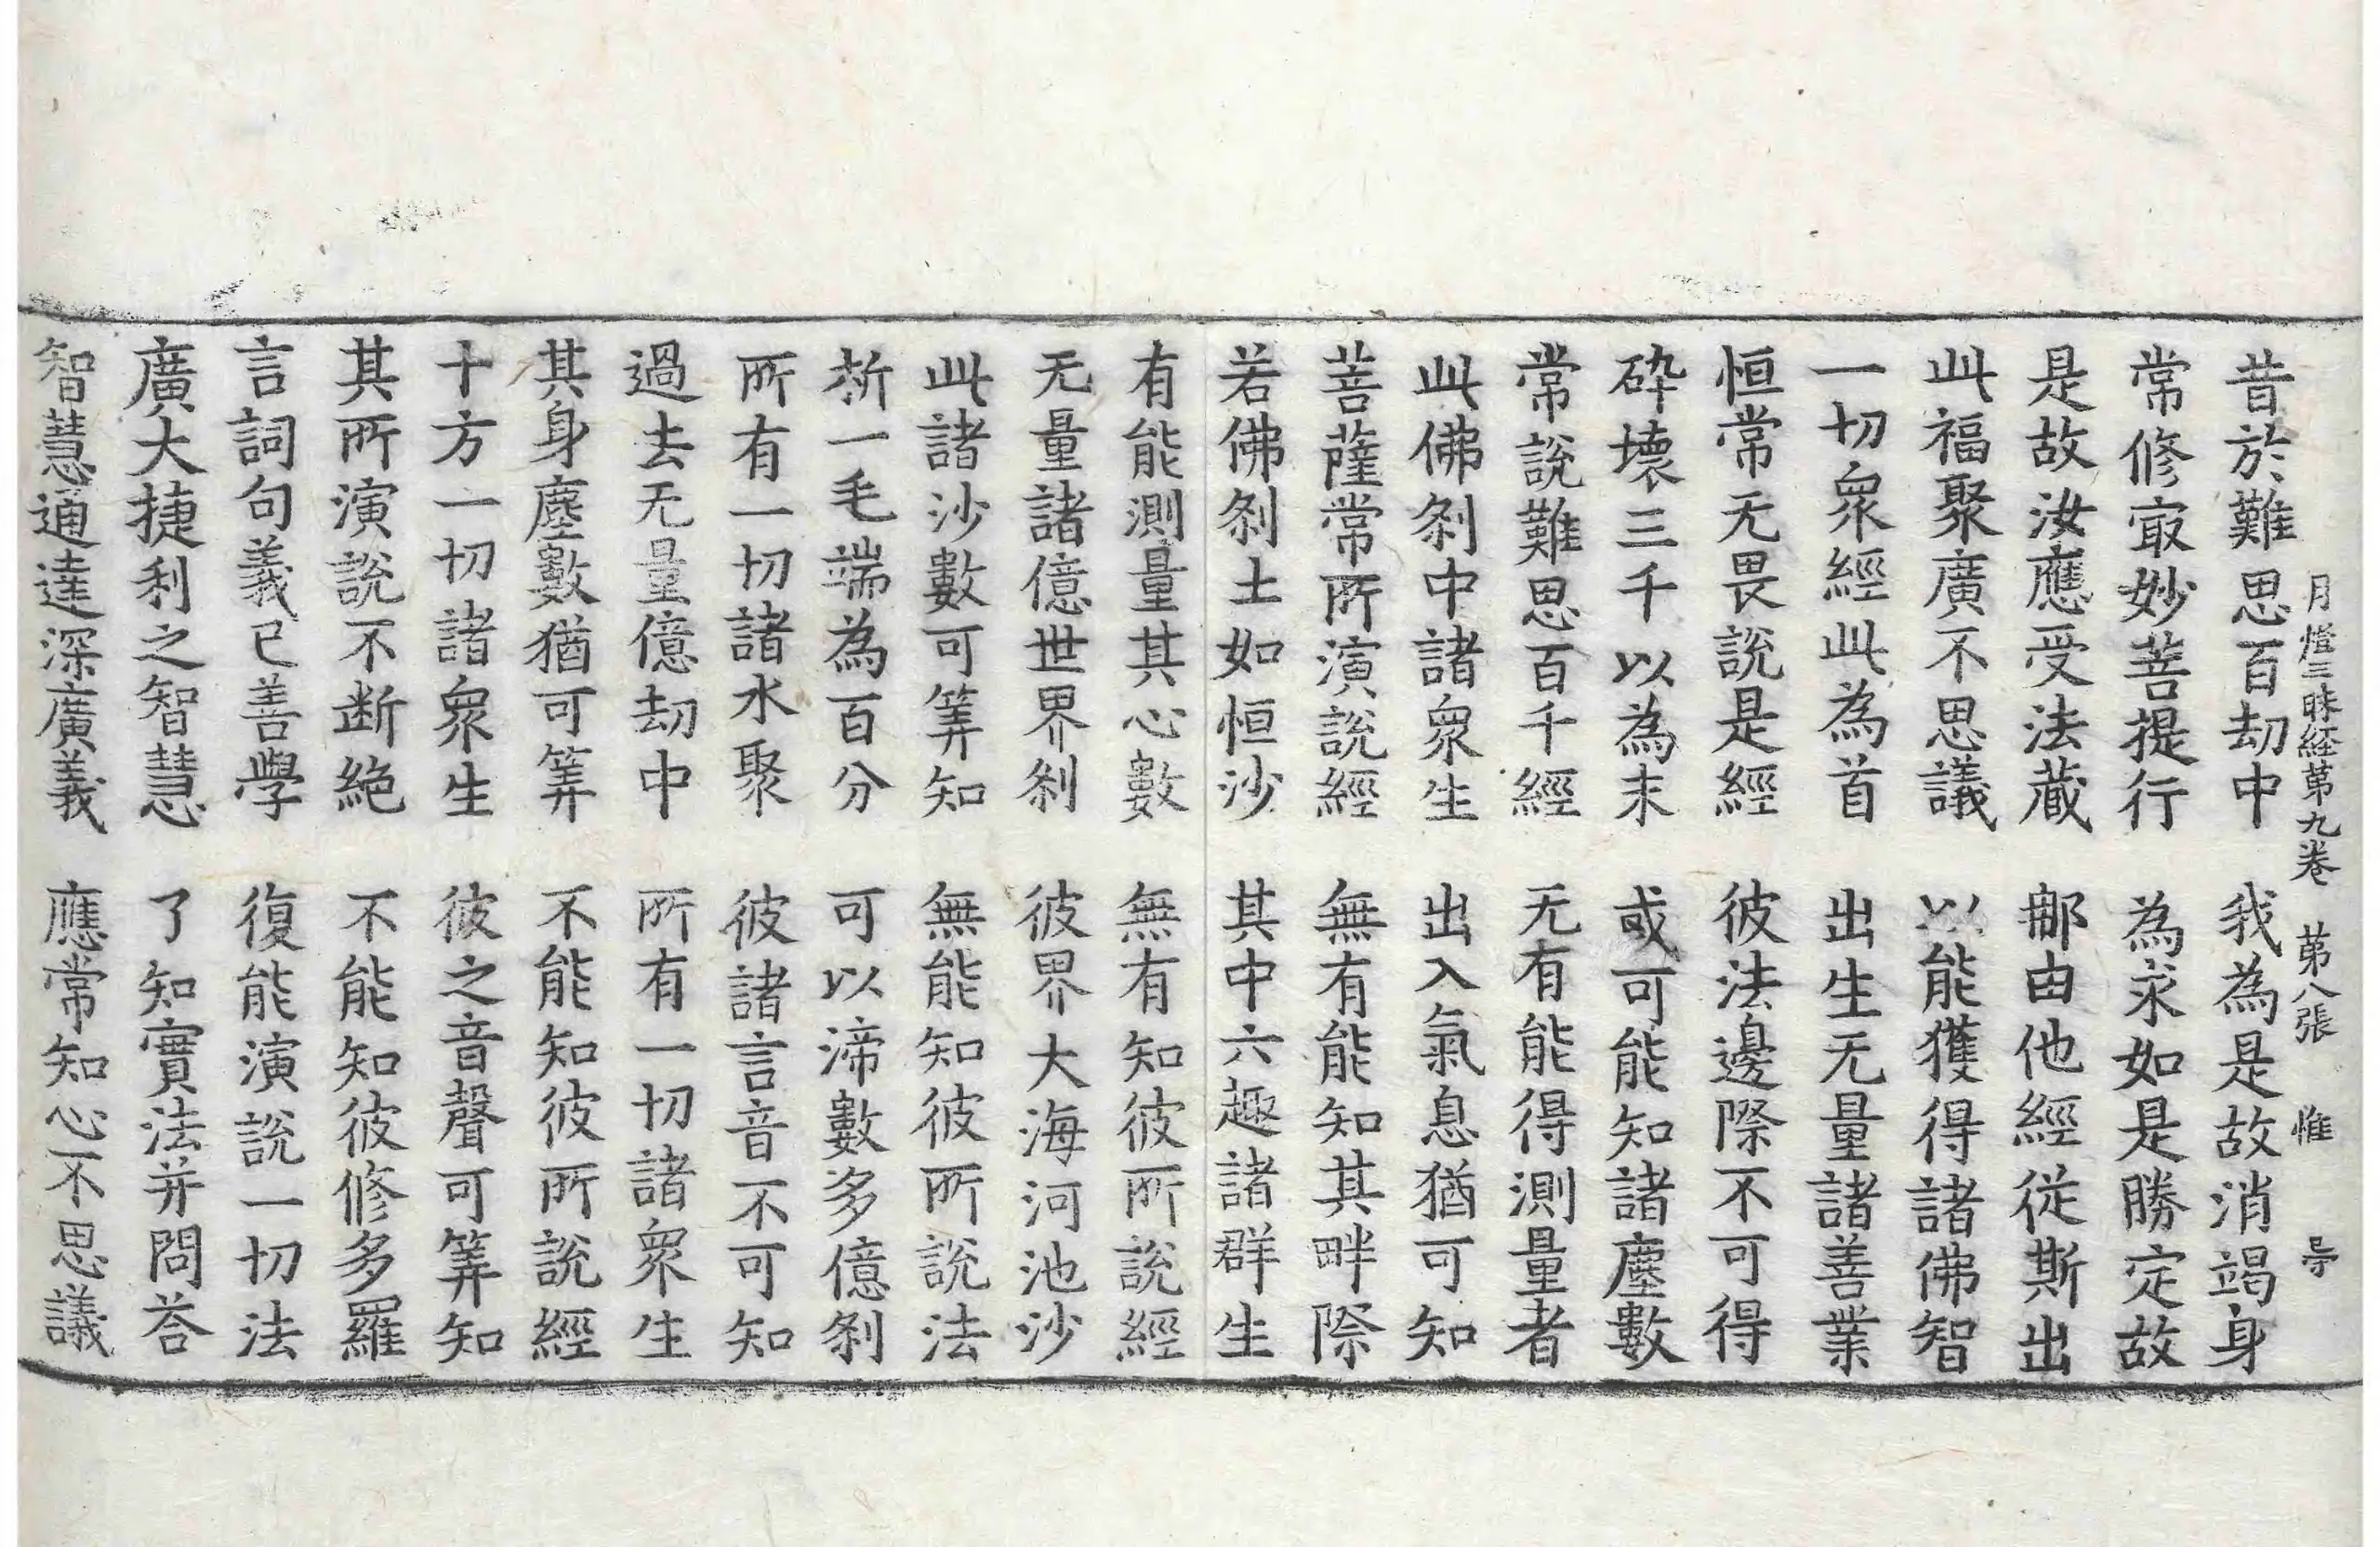 月燈三昧経第九卷 第八張 惟 号
昔於難思百劫中 我為是故消竭身
常修㝡妙菩提行 為求如是勝定故
是故汝應受法蔵 鄁由他經從斯出
此福聚廣不思議 以能獲得諸佛智
一切衆經此為首 出生无量諸善業
恒常无畏說是經 彼法邊際不可得
碎壞三千以為末 或可能知諸塵數
常說難思百千經 无有能得測量者
此佛刹中諸衆生 出入氣息猶可知
菩薩常所演說經 無有能知其畔際
若佛刹土如恒沙 其中六趣諸群生
有能測量其心數 無有知彼所說經
无量諸億世界刹 彼界大海河池沙
此諸沙數可筭知 無能知彼所說法
析一毛端為百分 可以渧數多億刹
所有一切諸水聚 彼諸言音不可知
過去无量億劫中 所有一切諸衆生
其身塵數猶可筭 不能知彼所說經
十方一切諸衆生 彼之音聲可筭知
其所演說不断絕 不能知彼修多羅
言詞句義已善學 復能演說一切法
廣大捷利之智慧 了知實法并問荅
智慧通達深廣義 應常知心不思議